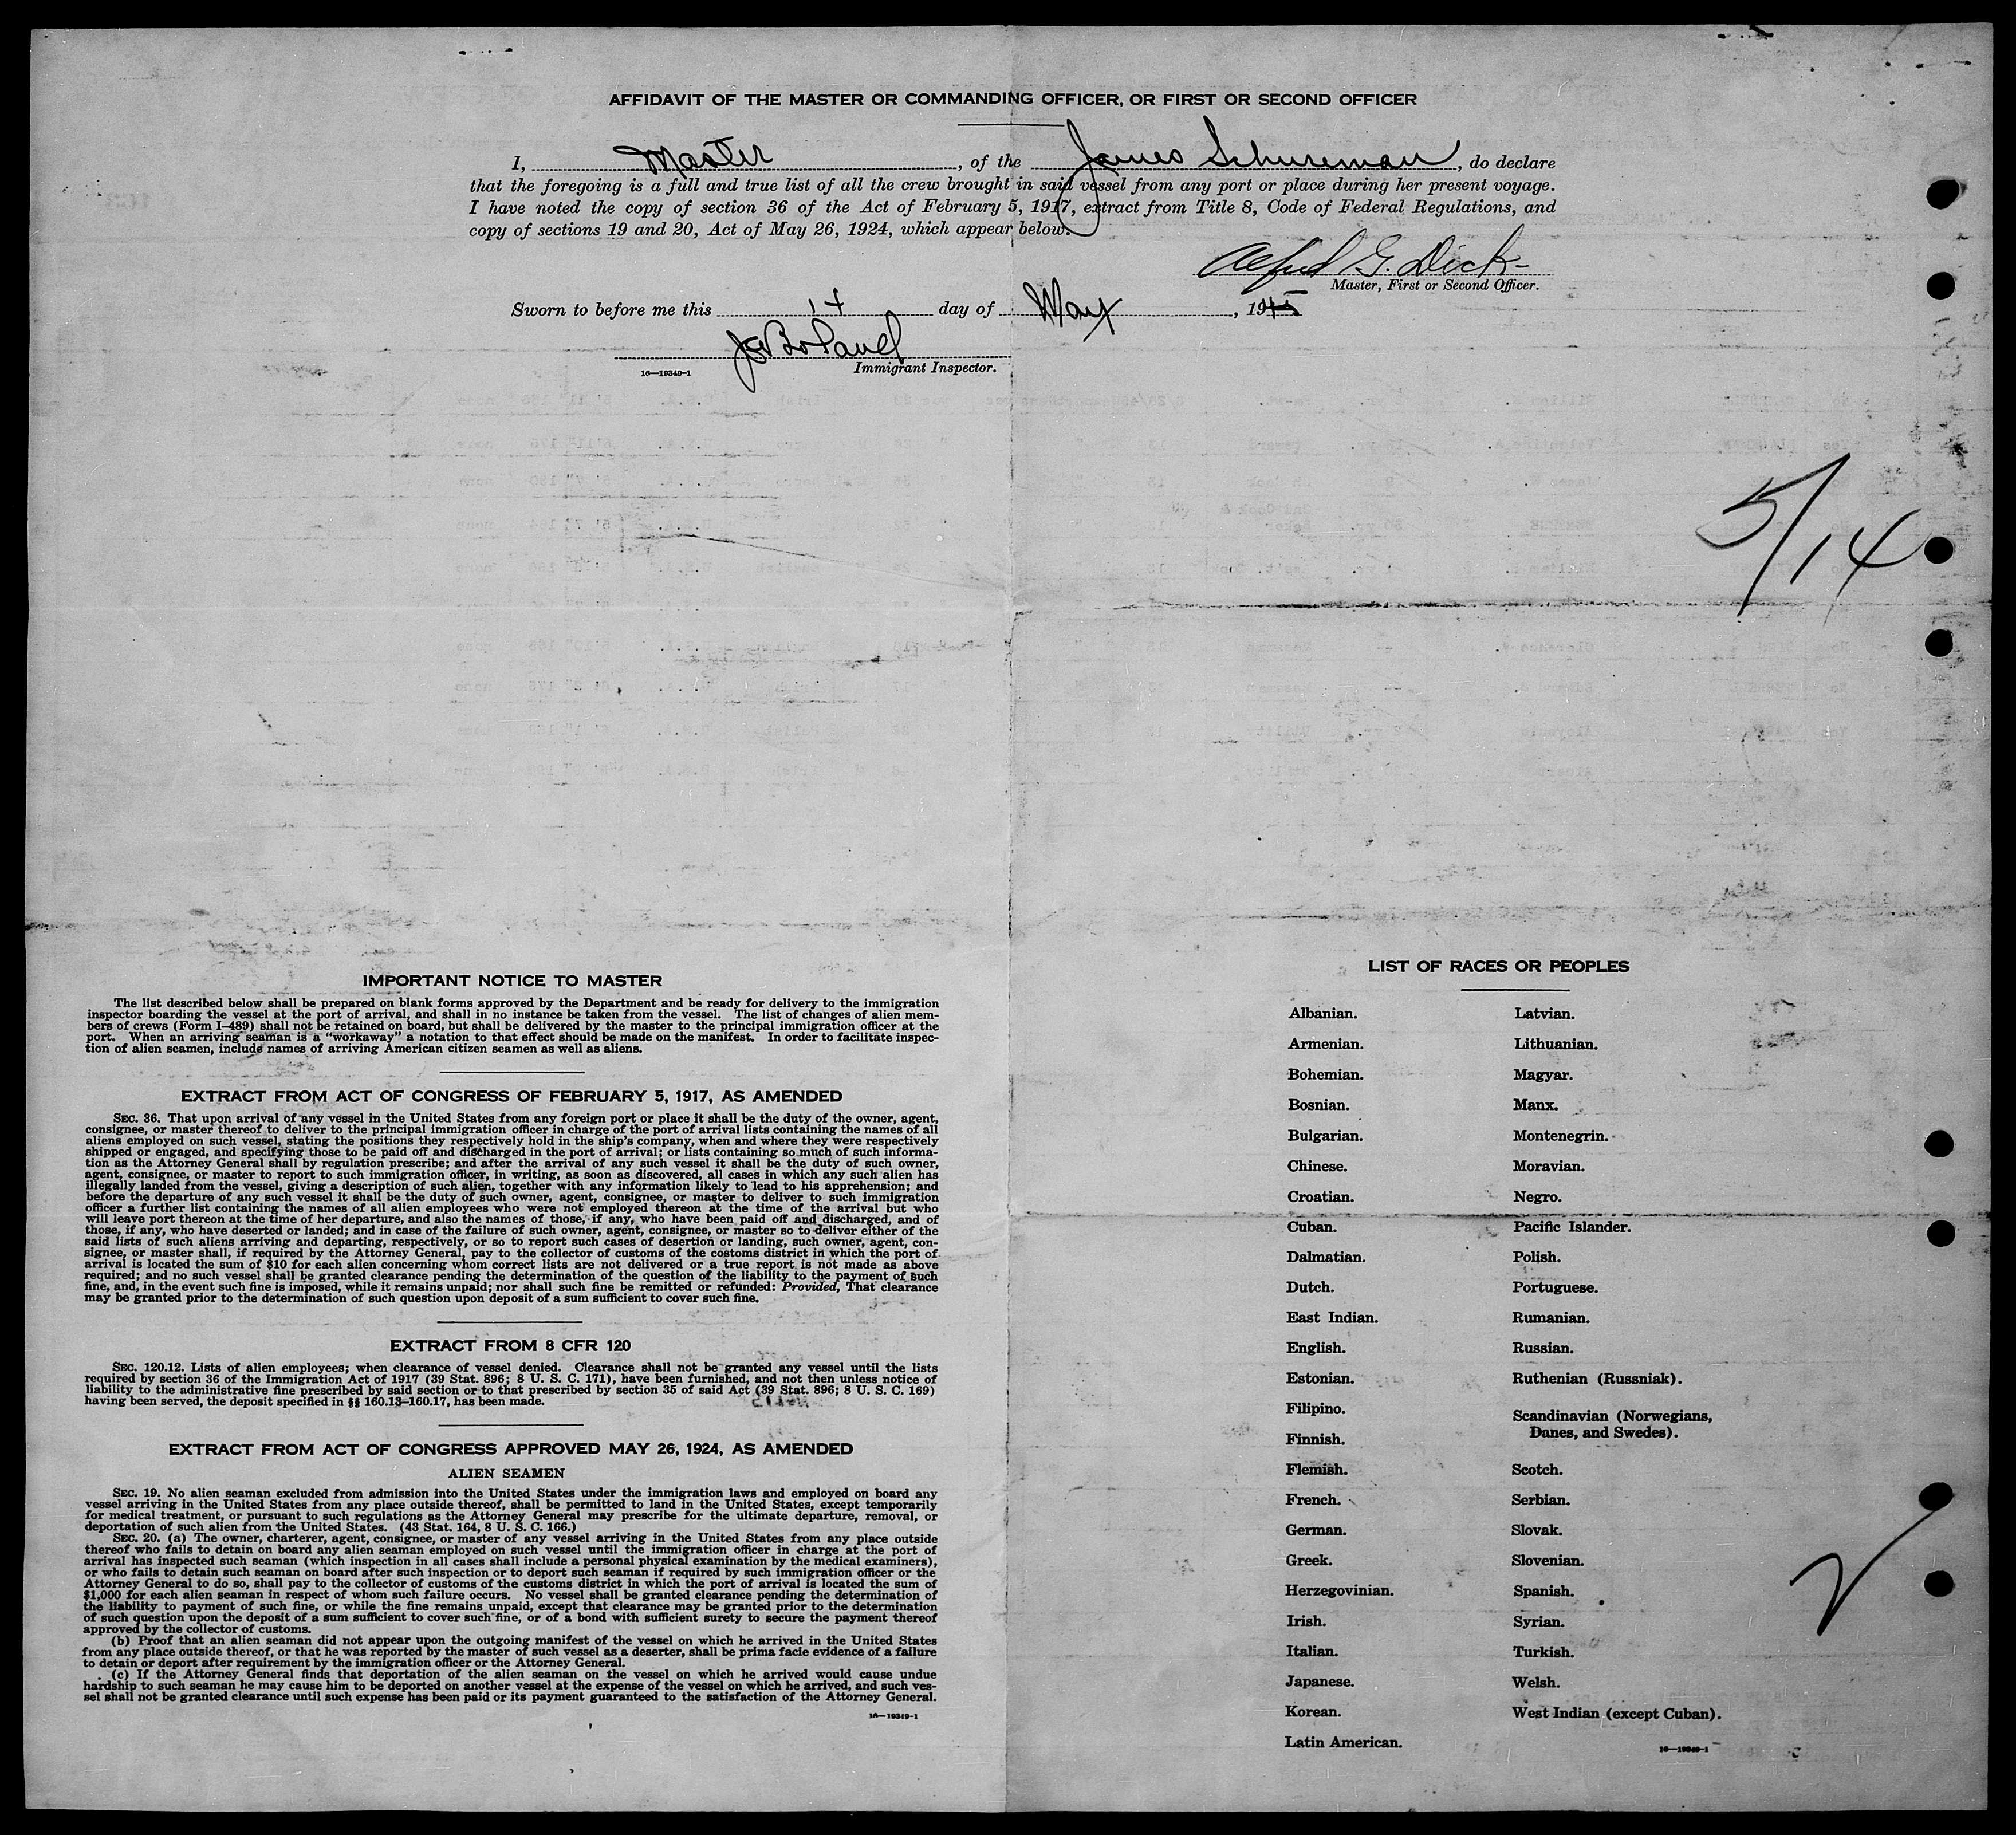 AFFIDAVIT OF THE MASTER OR COMMANDING OFFICER, OR FIRST OR SECOND OFFICER
I, Master, of the James Schureman, do declare
that the foregoing is a full and true list of all the crew brought in said vessel from any port or place during her present voyage.
I have noted the copy of section 36 of the Act of February 5, 1917, extract from Title 8, Code of Federal Regulations, and
copy of sections 19 and 20, Act of May 26, 1924, which appear below.
Alfred G. Dick
Master, First or Second Officer.
Sworn to before me this 14 day of May, 1945
Immigrant Inspector.
16—19349-1
5/14
IMPORTANT NOTICE TO MASTER
The list described below shall be prepared on blank forms approved by the Department and be ready for delivery to the immigration
inspector boarding the vessel at the port of arrival, and shall in no instance be taken from the vessel. The list of changes of alien mem-
bers of crews (Form I-489) shall not be retained on board, but shall be delivered by the master to the principal immigration officer at the
port. When an arriving seaman is a "workaway" a notation to that effect should be made on the manifest. In order to facilitate inspec-
tion of alien seamen, include names of arriving American citizen seamen as well as aliens.
EXTRACT FROM ACT OF CONGRESS OF FEBRUARY 5, 1917, AS AMENDED
SEC. 36. That upon arrival of any vessel in the United States from any foreign port or place it shall be the duty of the owner, agent,
consignee, or master thereof to deliver to the principal immigration officer in charge of the port of arrival lists containing the names of all
aliens employed on such vessel, stating the positions they respectively hold in the ship's company, when and where they were respectively
shipped or engaged, and specifying those to be paid off and discharged in the port of arrival; or lists containing so much of such informa-
tion as the Attorney General shall by regulation prescribe; and after the arrival of any such vessel it shall be the duty of such owner,
agent, consignee, or master to report to such immigration officer, in writing, as soon as discovered, all cases in which any such alien has
illegally landed from the vessel, giving a description of such alien, together with any information likely to lead to his apprehension; and
before the departure of any such vessel it shall be the duty of such owner, agent, consignee, or master to deliver to such immigration
officer a further list containing the names of all alien employees who were not employed thereon at the time of the arrival but who
will leave port thereon at the time of her departure, and also the names of those, if any, who have been paid off and discharged, and of
those, if any, who have deserted or landed; and in case of the failure of such owner, agent, consignee, or master so to deliver either of the
said lists of such aliens arriving and departing, respectively, or so to report such cases of desertion or landing, such owner, agent, con-
signee, or master shall, if required by the Attorney General, pay to the collector of customs of the costoms district in which the port of
arrival is located the sum of $10 for each alien concerning whom correct lists are not delivered or a true report is not made as above
required; and no such vessel shall be granted clearance pending the determination of the question of the liability to the payment of such
fine, and, in the event such fine is imposed, while it remains unpaid; nor shall such fine be remitted or refunded: Provided, That clearance
may be granted prior to the determination of such question upon deposit of a sum sufficient to cover such fine.
EXTRACT FROM 8 CFR 120
SEC. 120.12. Lists of alien employees; when clearance of vessel denied. Clearance shall not be granted any vessel until the lists
required by section 36 of the Immigration Act of 1917 (39 Stat. 896; 8 U. S. C. 171), have been furnished, and not then unless notice of
liability to the administrative fine prescribed by said section or to that prescribed by section 35 of said Act (39 Stat. 896; 8 U. S. C. 169)
having been served, the deposit specified in §§ 160.13–160.17, has been made.
EXTRACT FROM ACT OF CONGRESS APPROVED MAY 26, 1924, AS AMENDED
ALIEN SEAMEN
SEC. 19. No alien seaman excluded from admission into the United States under the immigration laws and employed on board any
vessel arriving in the United States from any place outside thereof, shall be permitted to land in the United States, except temporarily
for medical treatment, or pursuant to such regulations as the Attorney General may prescribe for the ultimate departure, removal, or
deportation of such alien from the United States. (43 Stat. 164, 8 U. S. C. 166.)
SEC. 20. (a) The owner, charterer, agent, consignee, or master of any vessel arriving in the United States from any place outside
thereof who fails to detain on board any alien seaman employed on such vessel until the immigration officer in charge at the port of
arrival has inspected such seaman (which inspection in all cases shall include a personal physical examination by the medical examiners),
or who fails to detain such seaman on board after such inspection or to deport such seaman if required by such immigration officer or the
Attorney General to do so, shall pay to the collector of customs of the customs district in which the port of arrival is located the sum of
$1,000 for each alien seaman in respect of whom such failure occurs. No vessel shall be granted clearance pending the determination of
the liability to payment of such fine, or while the fine remains unpaid, except that clearance may be granted prior to the determination
of such question upon the deposit of a sum sufficient to cover such fine, or of a bond with sufficient surety to secure the payment thereof
approved by the collector of customs.
(b) Proof that an alien seaman did not appear upon the outgoing manifest of the vessel on which he arrived in the United States
from any place outside thereof, or that he was reported by the master of such vessel as a deserter, shall be prima facie evidence of a failure
to detain or deport after requirement by the immigration officer or the Attorney General.
(c) If the Attorney General finds that deportation of the alien seaman on the vessel on which he arrived would cause undue
hardship to such seaman he may cause him to be deported on another vessel at the expense of the vessel on which he arrived, and such ves-
sel shall not be granted clearance until such expense has been paid or its payment guaranteed to the satisfaction of the Attorney General.
16—19349-1
LIST OF RACES OR PEOPLES
Albanian.
Armenian.
Bohemian.
Bosnian.
Bulgarian.
Chinese.
Croatian.
Cuban.
Dalmatian.
Dutch.
East Indian.
English.
Estonian.
Filipino.
Finnish.
Flemish.
French.
German.
Greek.
Herzegovinian.
Irish.
Italian.
Japanese.
Korean.
Latin American.
Latvian.
Lithuanian.
Magyar.
Manx.
Montenegrin.
Moravian.
Negro.
Pacific Islander.
Polish.
Portuguese.
Rumanian.
Russian.
Ruthenian (Russniak).
Scandinavian (Norwegians,
Danes, and Swedes).
Scotch.
Serbian.
Slovak.
Slovenian.
Spanish.
Syrian.
Turkish.
Welsh.
West Indian (except Cuban).
16—19349-1